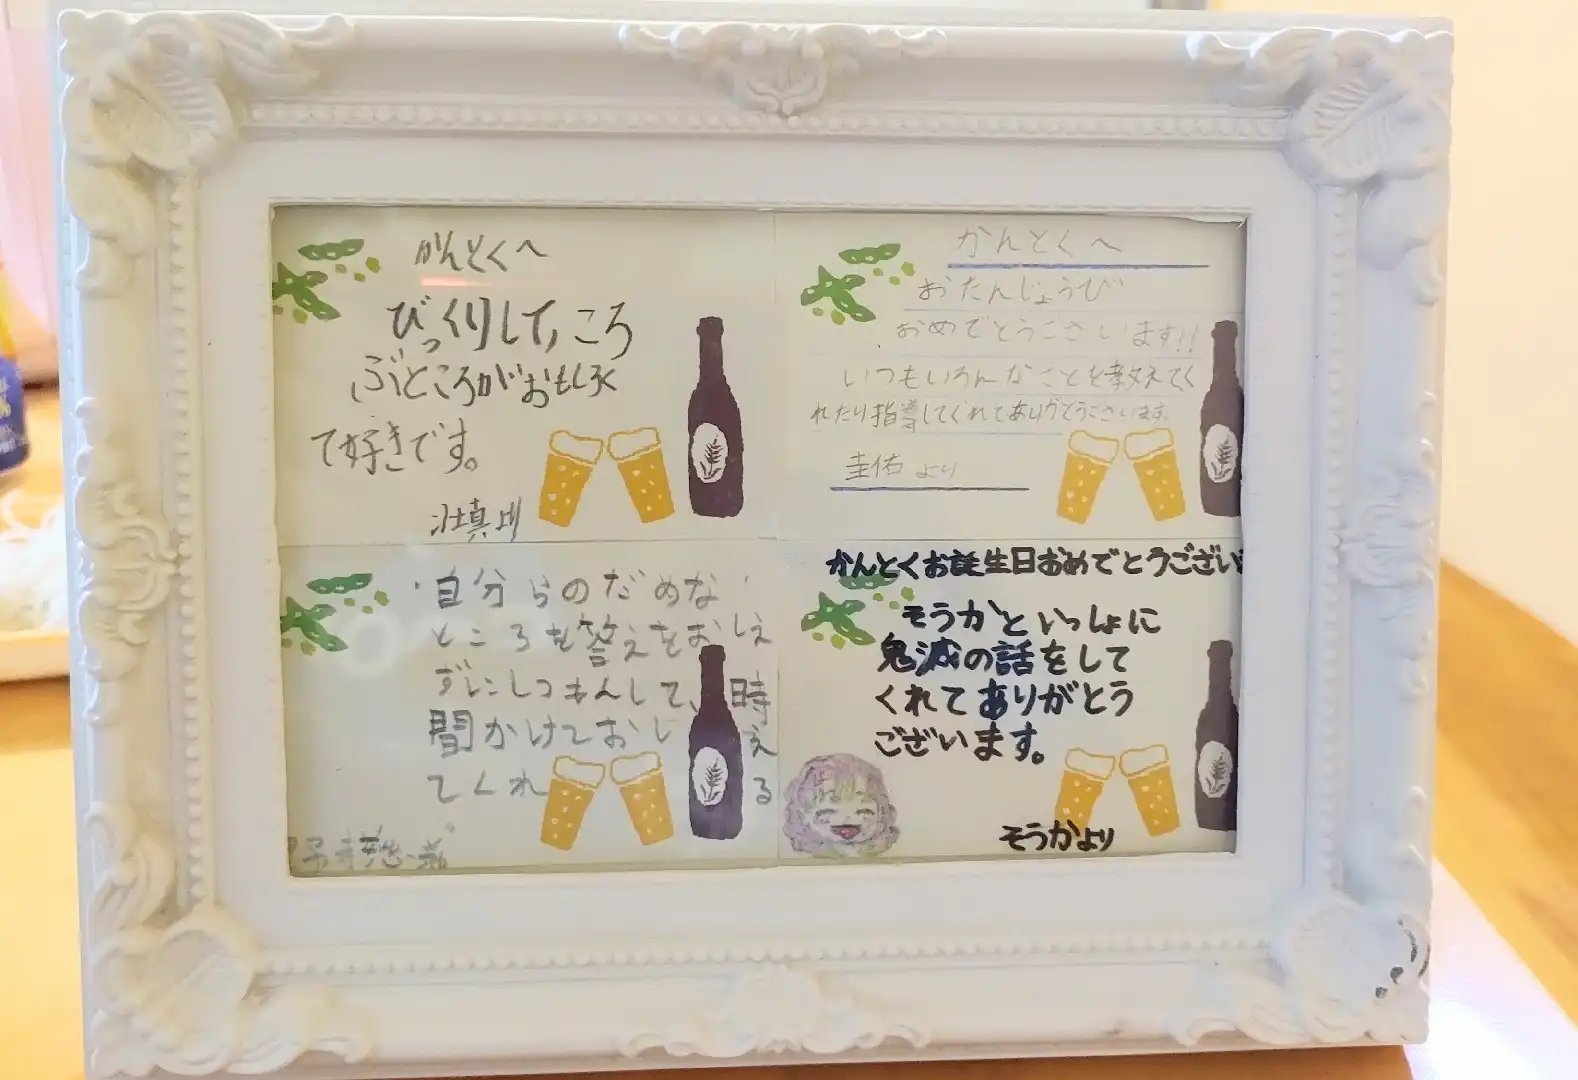 かんとくへ
びっくりして、ころ
ぶところがおもしろく
て好きです。
壮真より
かんとくへ
おたんじょうび
おめでとうございます!!
いつもいろんなことを教えてく
れたり指導してくれてありがとうございます。
圭佑より
自分らのだめな
ところを答えをおしえ
ずにしつもんして、時
間かけておしえ
てくれる
かんとくお誕生日おめでとうござい
そうかといっしょに
鬼滅の話をして
くれてありがとう
ございます。
そうかより